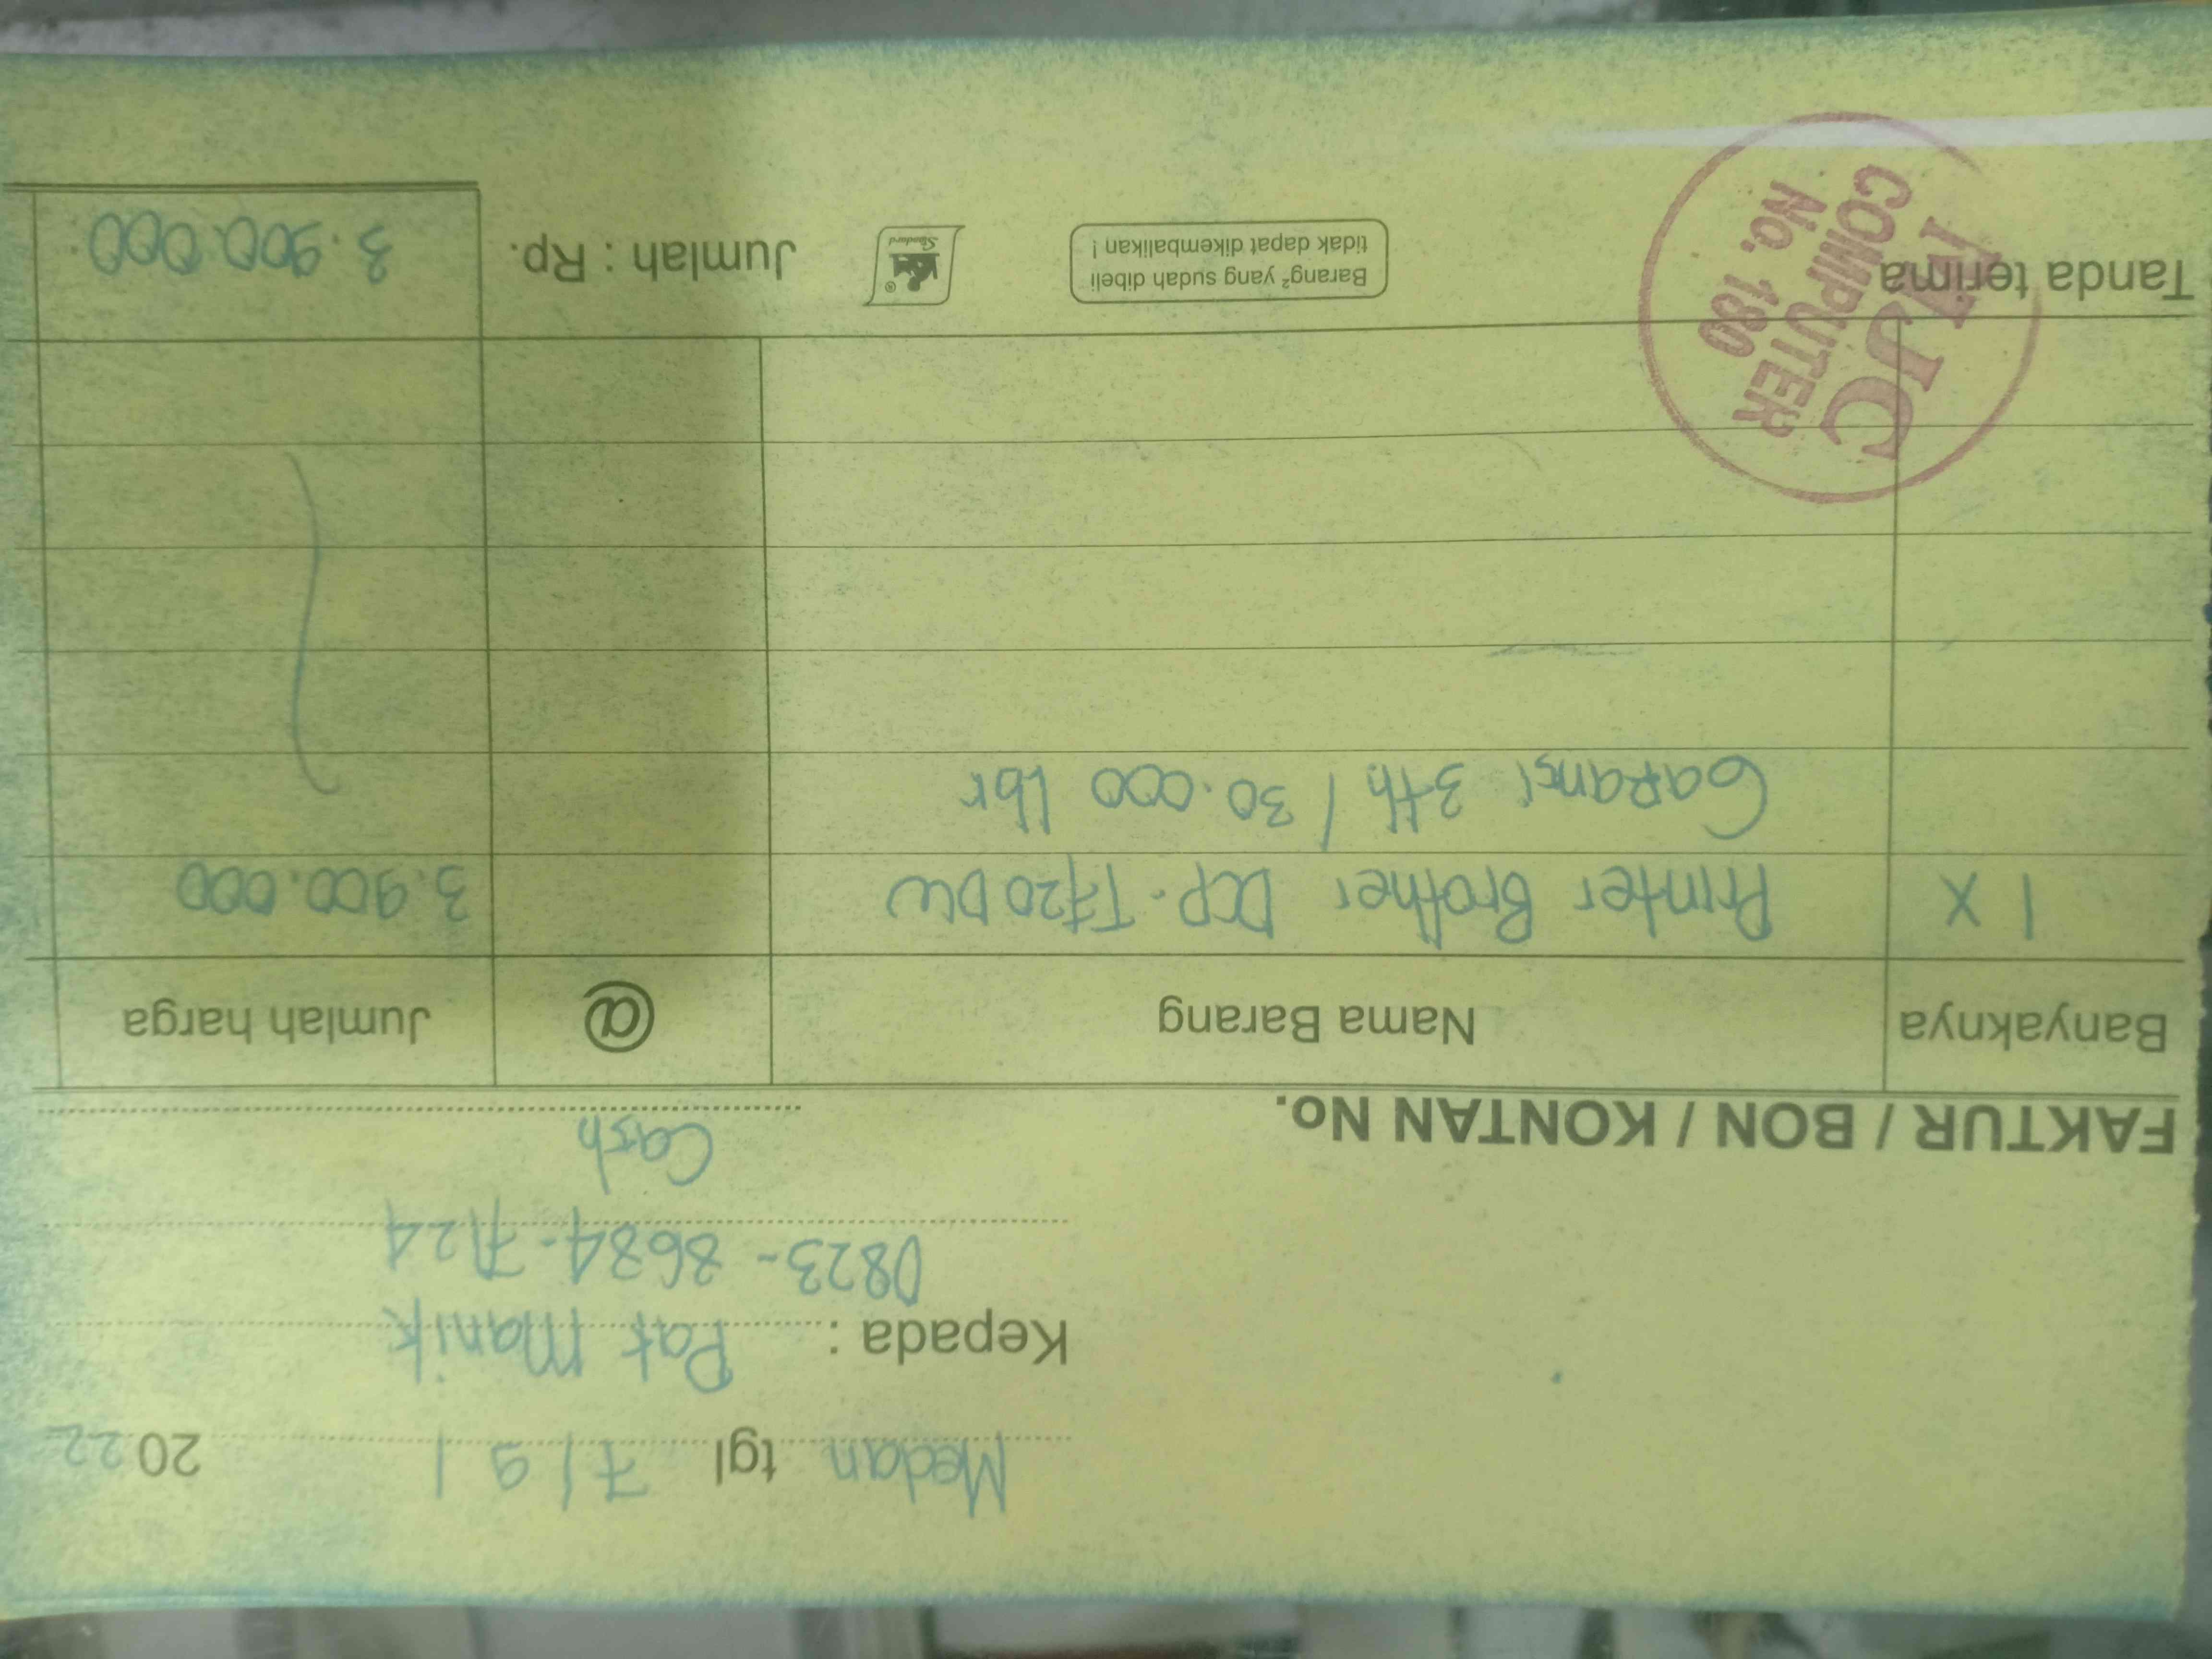 Medan tgl 7/9/ 2022
Kepada : Pak Manik
0823-8684-7124
Cash
FAKTUR / BON / KONTAN No.
Banyaknya Nama Barang @ Jumlah harga
1 X Printer Brother DCP-T720DW 3.900.000
Garansi 3th / 30.000 lbr
Tanda terima
Barang² yang sudah dibeli
tidak dapat dikembalikan !
® Standard
Jumlah : Rp. 3.900.000
COMPUTER
No. 180